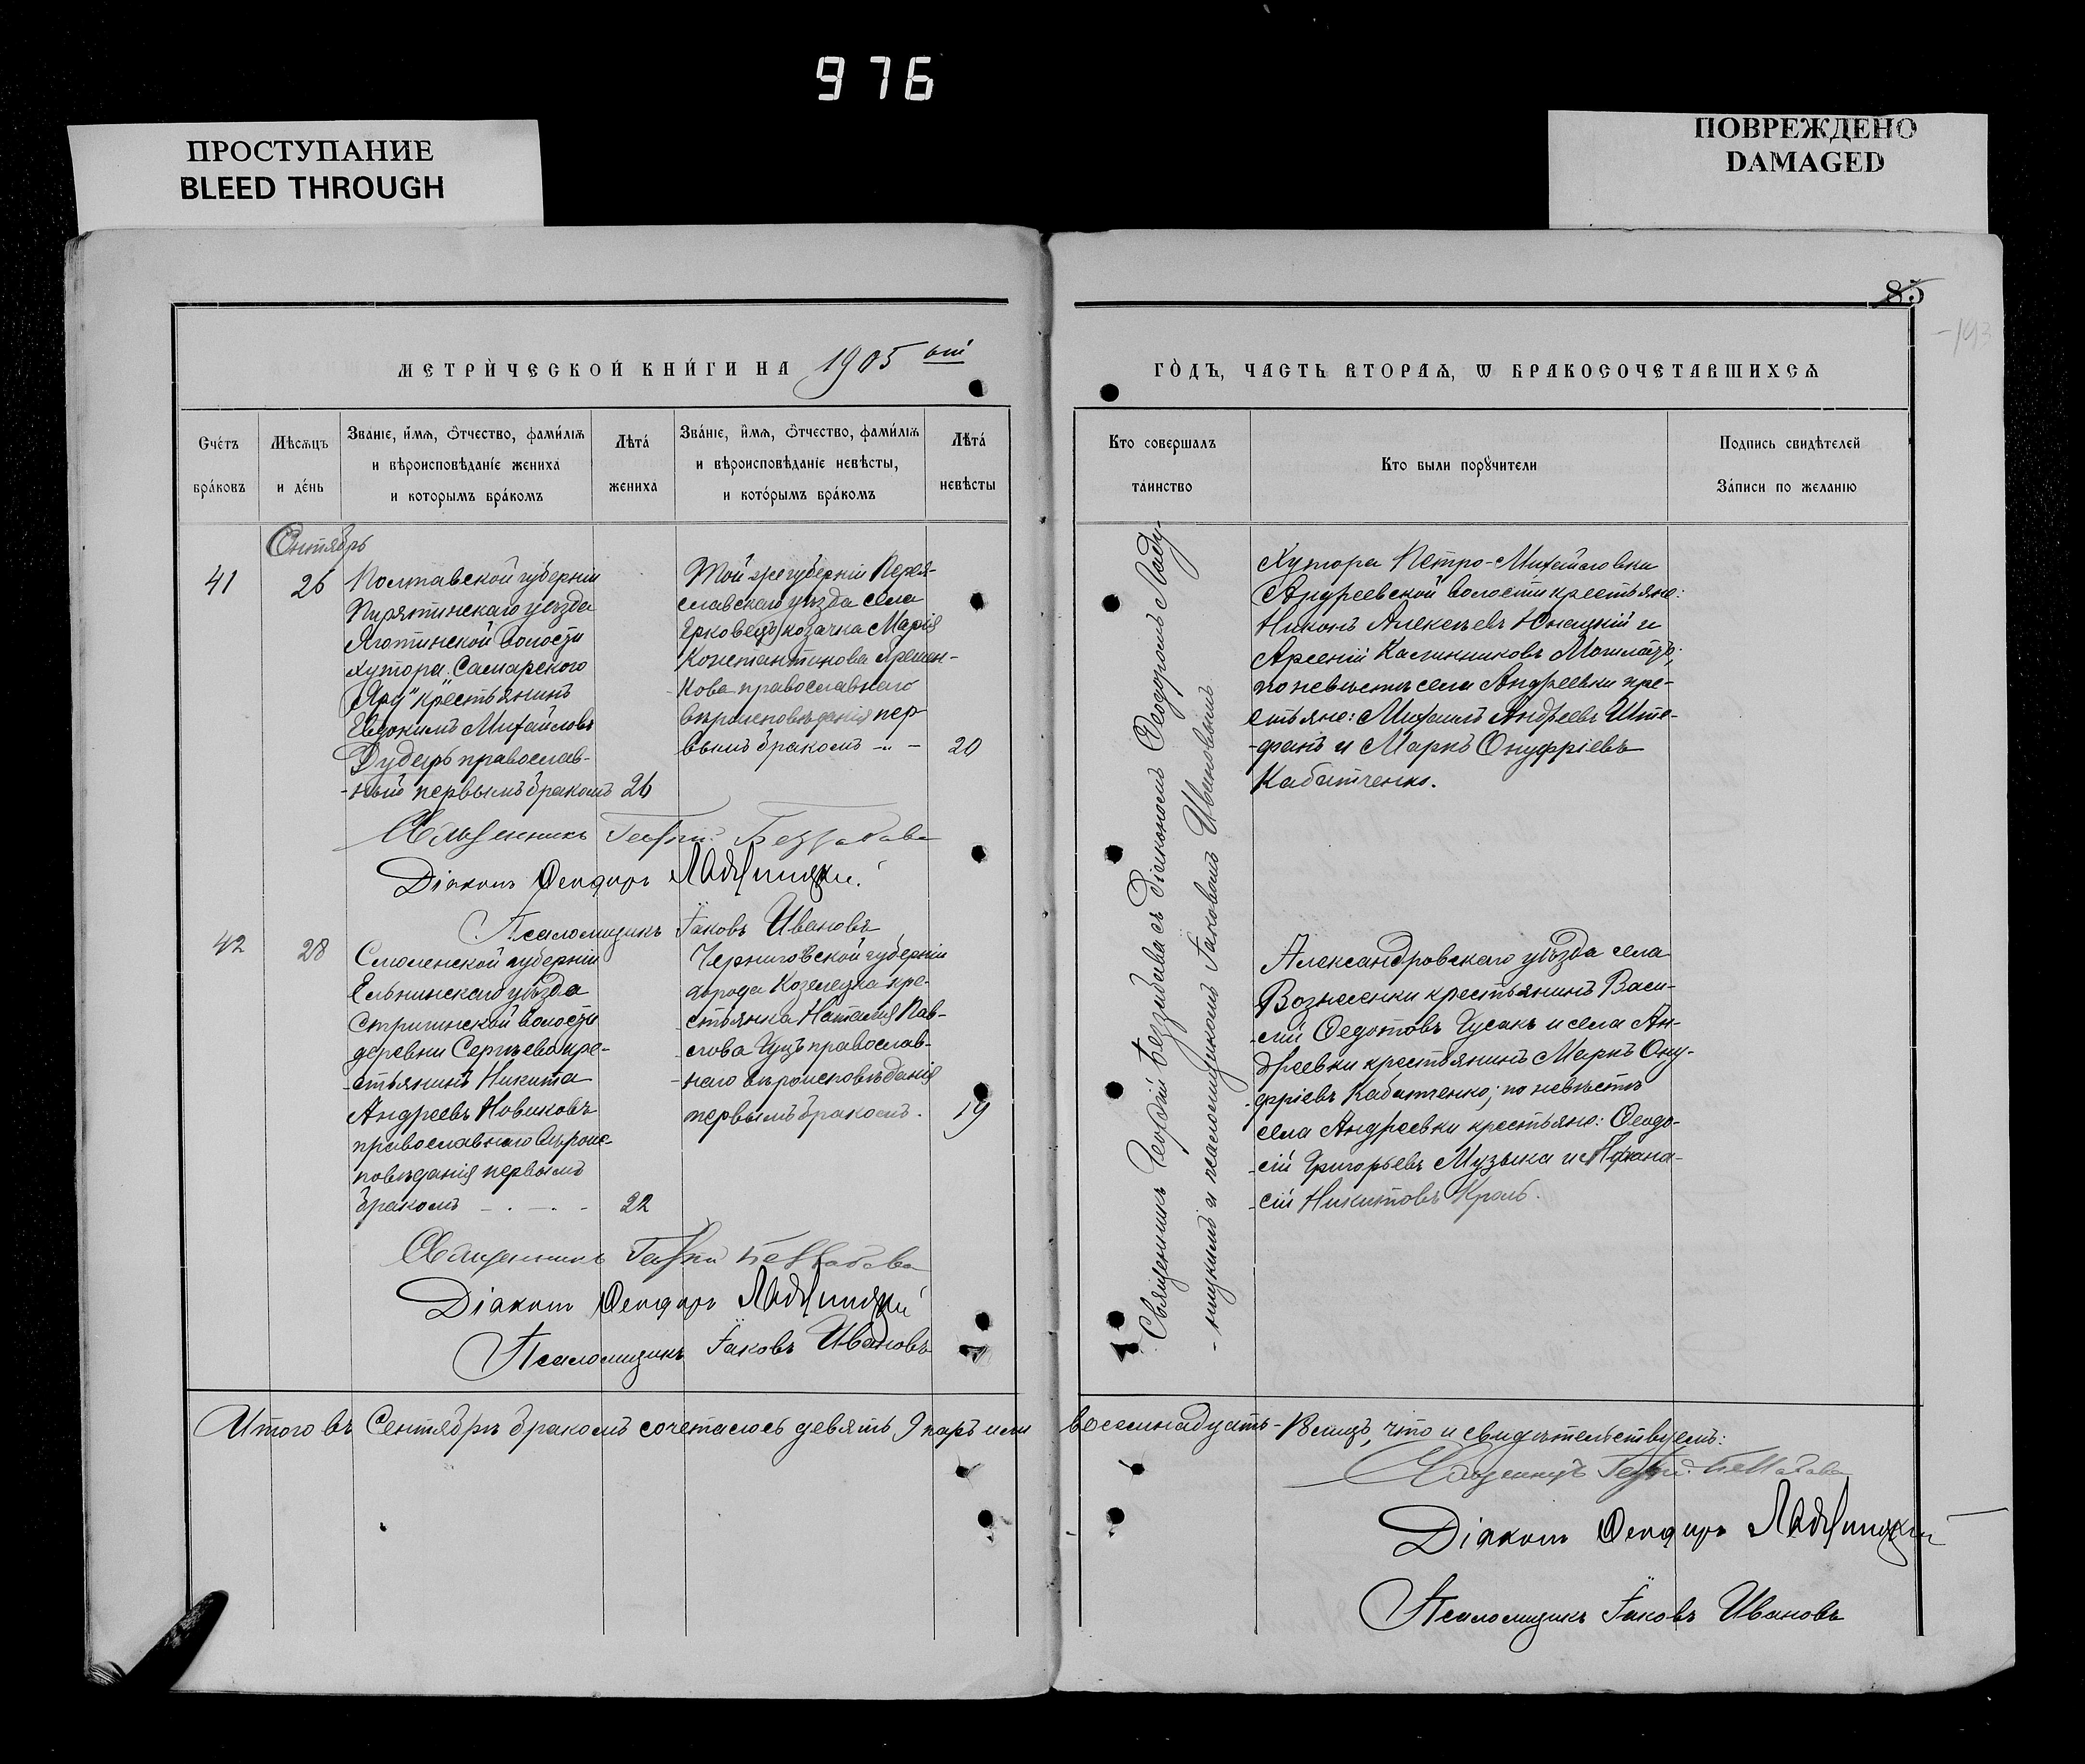 976
ПРОСТУПАНИЕ
BLEED THROUGH
ПОВРЕЖДЕНО
DAMAGED
85
-193
МЕТРИ́ЧЕСКОЙ КНИ́ГИ НА 1905 ый
ГО́ДЪ, ЧАСТЬ ВТОРАѦ, Ѡ БРАКОСОЧЕТАВШИХСѦ
Сче́тъ бра́ковъ
Мѣ́сѧцъ и де́нь
Зва́нїе, и́мѧ, ѻ҆́тчество, фами́лїѧ
и вѣроисповѣ́данїе жениха̀
и которымъ бра́комъ
Лѣта́
жениха
Зва́нїе, и́мѧ, ѻ҆́тчество, фами́лїѧ
и вѣроисповѣ́данїе невѣ́сты,
и кото́рымъ бра́комъ
Лѣта́
невѣ́сты
Кто совершалъ
та́инство
Кто были порꙋчители
Подпись свидѣтелей
За́писи по желанію
41
26
Полтавской губерніи
Пирятинскаго уѣзда
Яготинской волости
хутора „Самарского
Яру" крестьянинъ
Евдокимъ Михайловъ
Дударь православ-
-ный первымъ бракомъ 26
Той же губерніи Перея-
славскаго уѣзда села
Ерковецъ козачка Марія
Константинова
-кова православнаго
вѣроисповѣданія пер
вымъ бракомъ -..- 20
Хутора Петро-Михайловки
Андреевской волости крестьяне:
Никонъ Алексѣевъ и
Арсеній Калинниковъ
по невѣстѣ села Андреевки кре-
стьяне: Михаилъ Андреевъ Ште-
-фанъ и Маркъ Онуфріевъ
Кабатченко.
Священникъ Георгій Беззабава
Діаконъ Ѳеодоръ
Псаломщикъ Іаковъ Ивановъ
42
28
Смоленской губерніи
Ельнинскаго уѣзда
Стригинской волости
деревни Сергѣева кре-
-стьянинъ Никита
Андреевъ Новиковъ
православнаго вѣроис-
повѣданія первымъ
бракомъ - . - . - 22
Черниговской губерніи
города Козелеца кре-
-стьянка Наталія Пав-
-лова Гуцъ православ-
-наго вѣроисповѣданія
первымъ бракомъ. 19
Александровскаго уѣзда села
Вознесенки крестьянинъ Васи-
-лій Ѳедотовъ Гусакъ и села Ан-
дреевки крестьянинъ Маркъ Ону-
-фріевъ Кабатченко; по невѣстѣ
села Андреевки крестьяне: Ѳеодо-
-сій Григорьевъ Музыка и Афана-
-сій Никитовъ Кроль.
Священникъ Георгій Беззабава съ діакономъ Ѳеодоромъ Лады-
-ницкимъ и псаломщикомъ Іаковомъ Ивановымъ
Священникъ Георгій Беззабава
Діаконъ Ѳеодоръ
Псаломщикъ Іаковъ Ивановъ
Итого въ Сентябрѣ бракомъ сочеталось девять 9 паръ или восемнадцать - 18 лицъ, что и свидѣтельствуемъ:
Священникъ Георгій Беззабава
Діаконъ Ѳеодоръ
Псаломщикъ Іаковъ Ивановъ